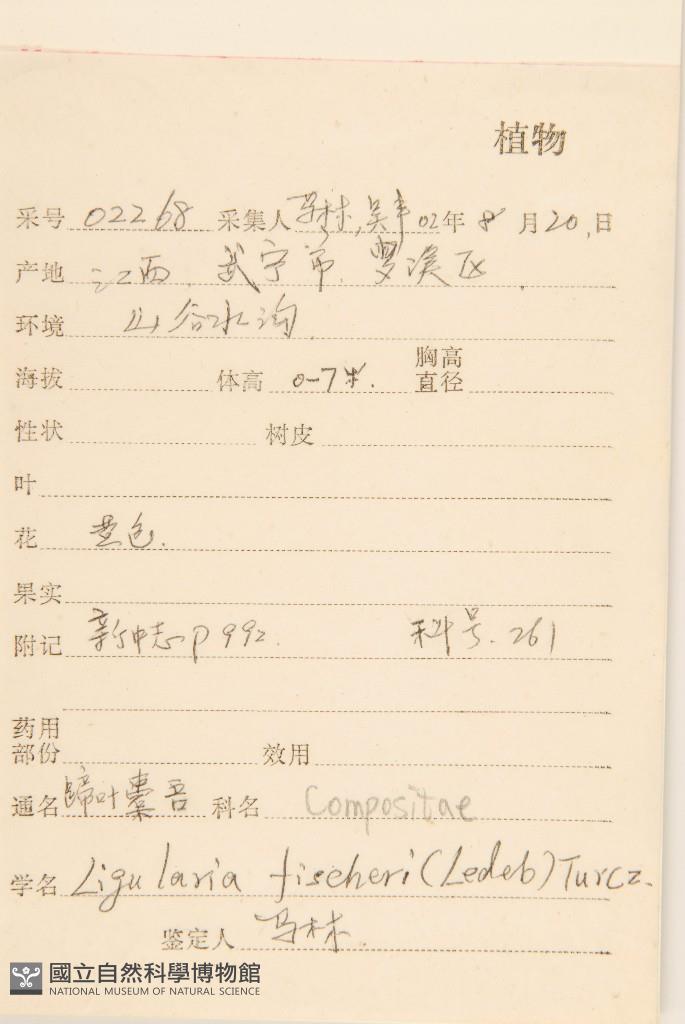 植物
采号 02268 采集人 马林,吴丰 02年 8 月 20,日
产地 江西.武宁市.罗溪区
环境 山谷水沟
海拔 体高 0-7米. 胸高直径
性状 树皮
叶
花 黄色.
果实
附记 新中志P992. 科号.261
药用部份 效用
通名 蹄叶橐吾 科名 Compositae
学名 Ligularia fischeri (Ledeb) Turcz.
鉴定人 马林.
國立自然科學博物館
NATIONAL MUSEUM OF NATURAL SCIENCE